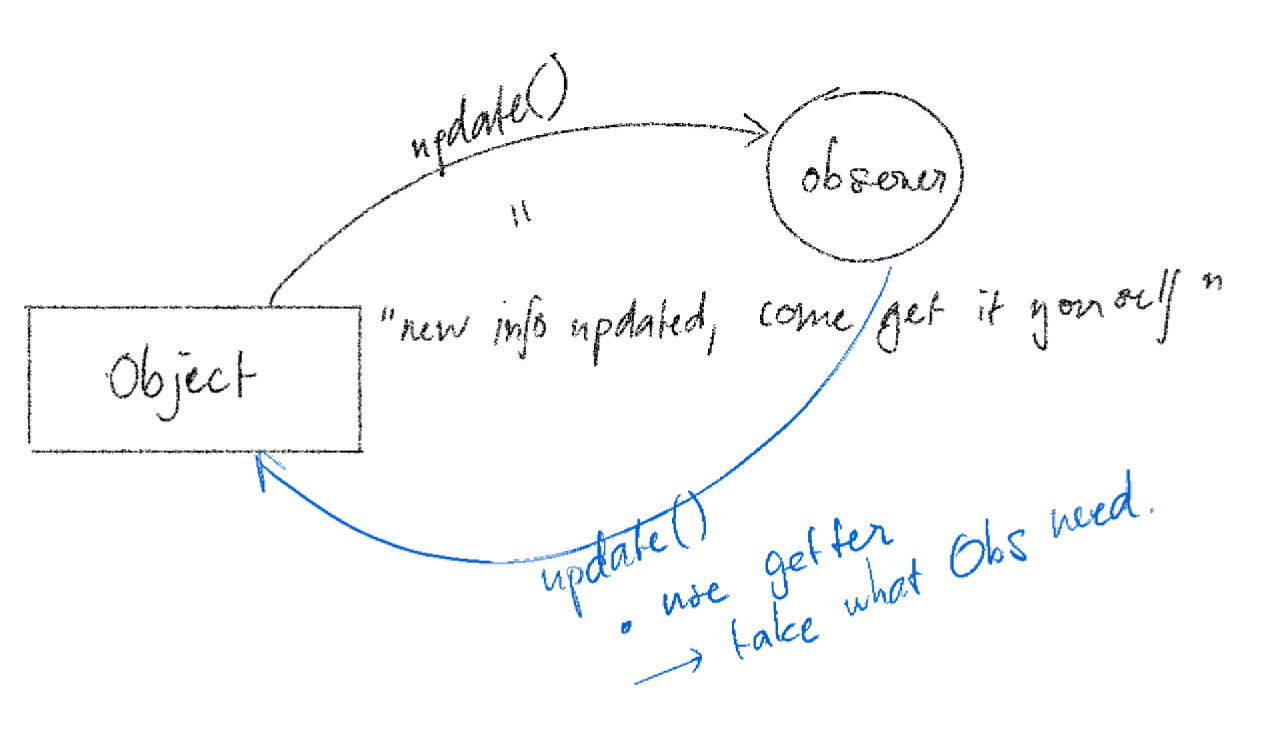 update()
observer
"
"new info updated, come get it yourself"
Object
update()
• use getter
→ take what Obs need.